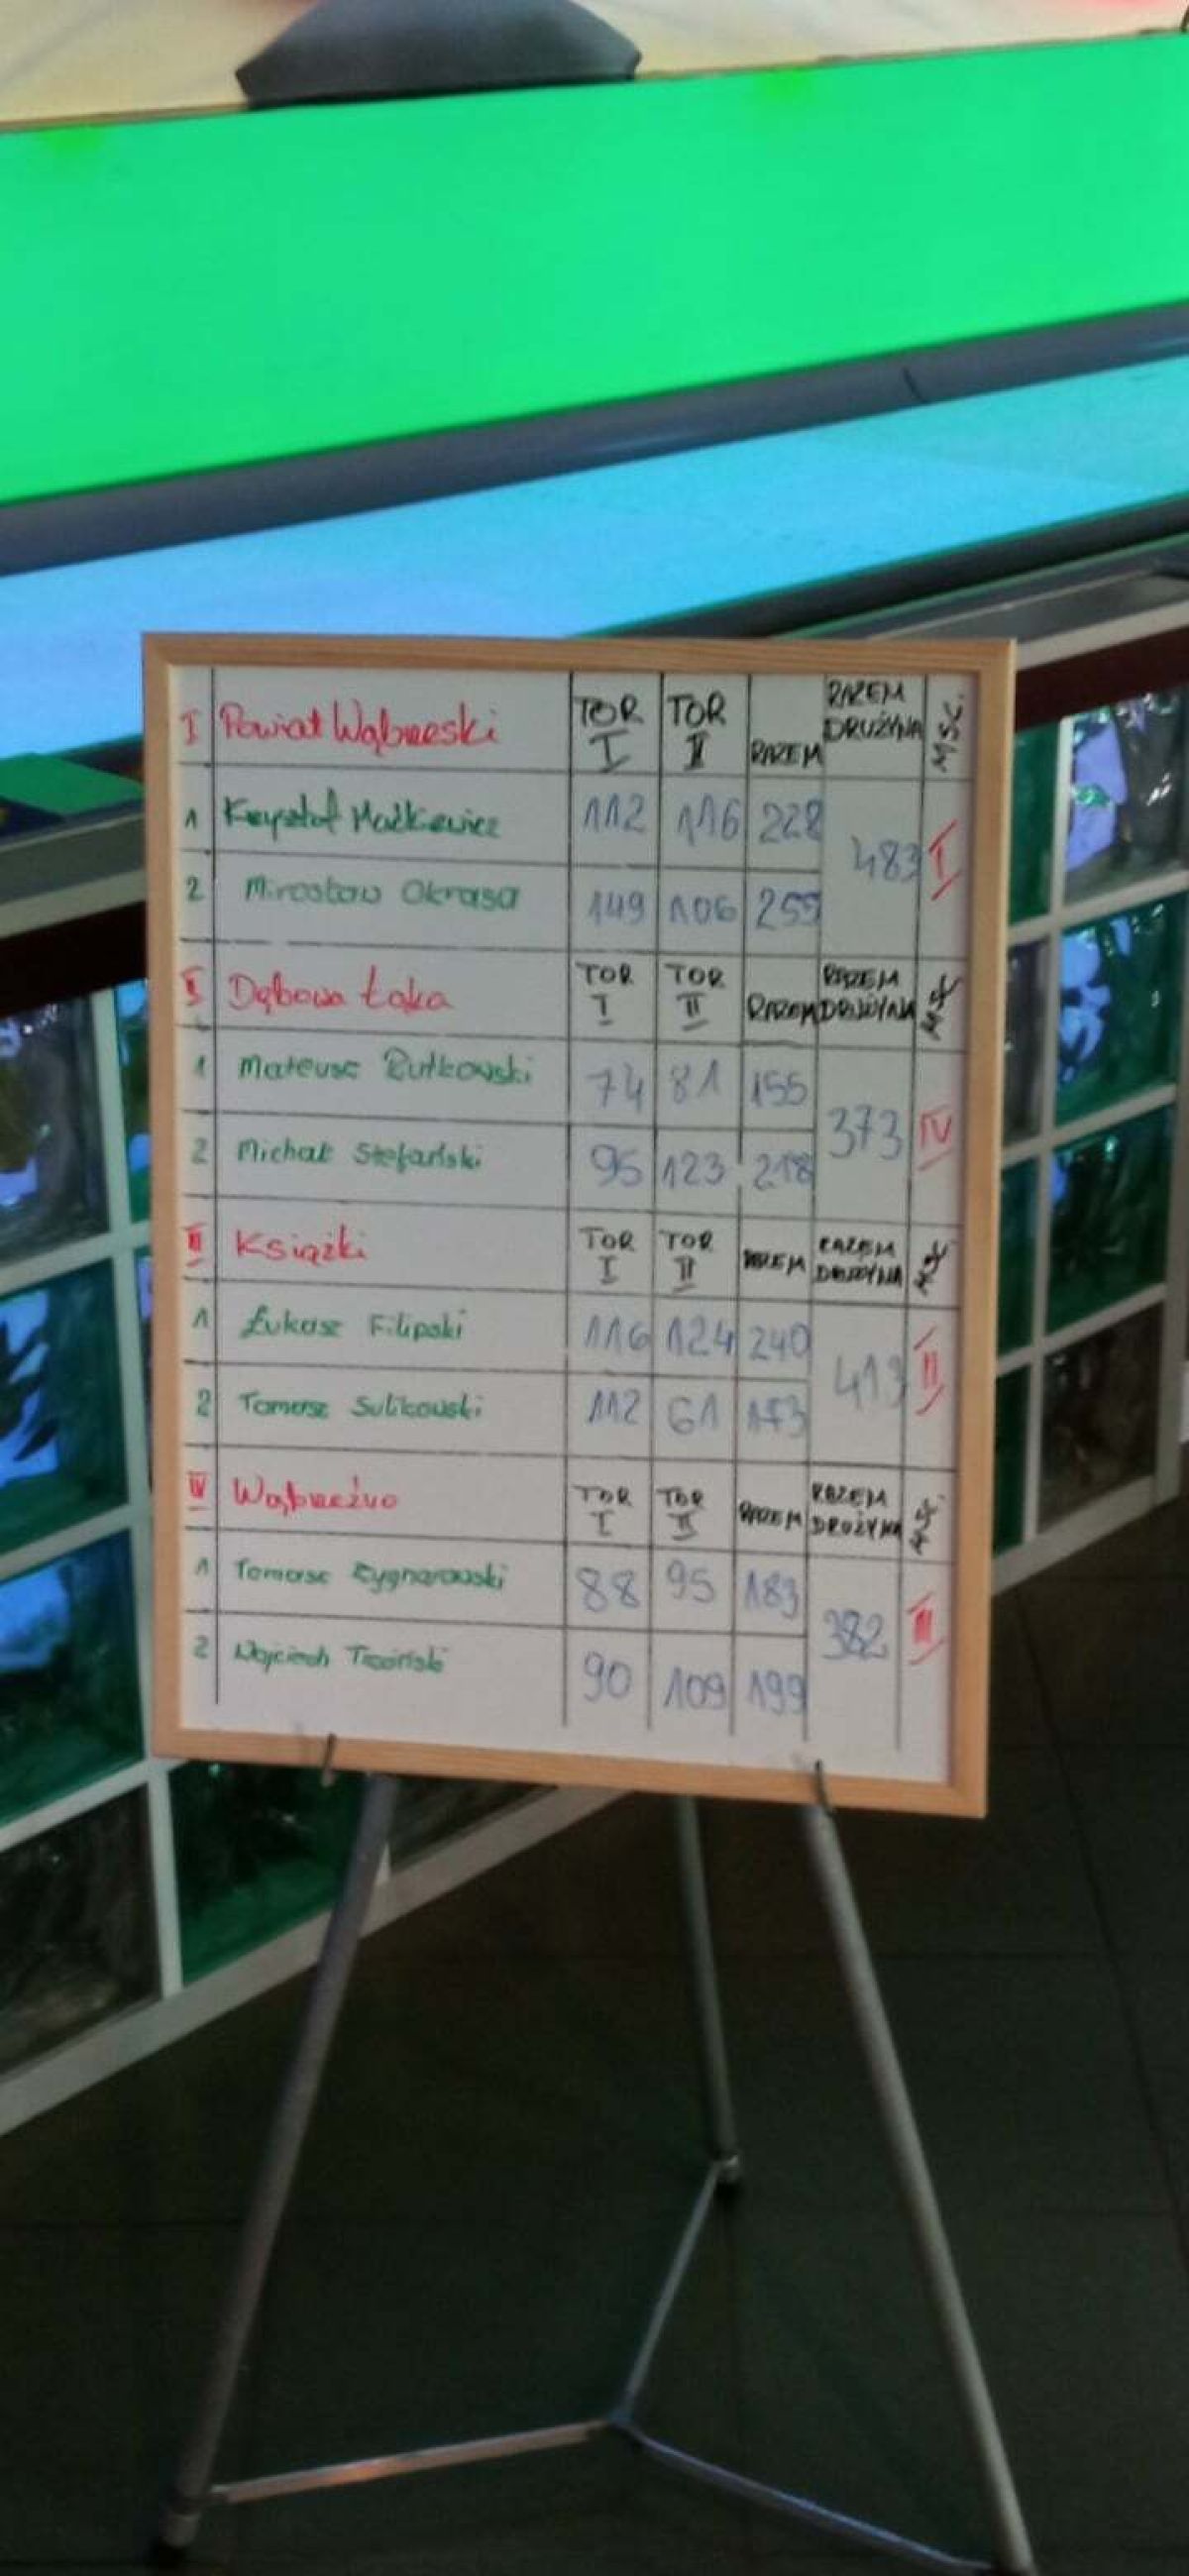 I Powiat Wąbrzeski TOR I TOR II RAZEM RAZEM DRUŻYNA MSC.
1 Krzysztof Maćkiewicz 112 116 228 483 I
2 Mirosław Okrasa 149 106 255
II Dębowa Łąka TOR I TOR II RAZEM RAZEM DRUŻYNA MSC
1 Mateusz Rutkowski 74 81 155 373 IV
2 Michał Stefański 95 123 218
III Książki TOR I TOR II RAZEM RAZEM DRUŻYNA MSC
1 Łukasz Filipski 116 124 240 413 II
2 Tomasz Sulikowski 112 61 173
IV Wąbrzeźno TOR I TOR II RAZEM RAZEM DRUŻYNA MSC.
1 Tomasz Zygnarowski 88 95 183 382 III
2 Wojciech 90 109 199